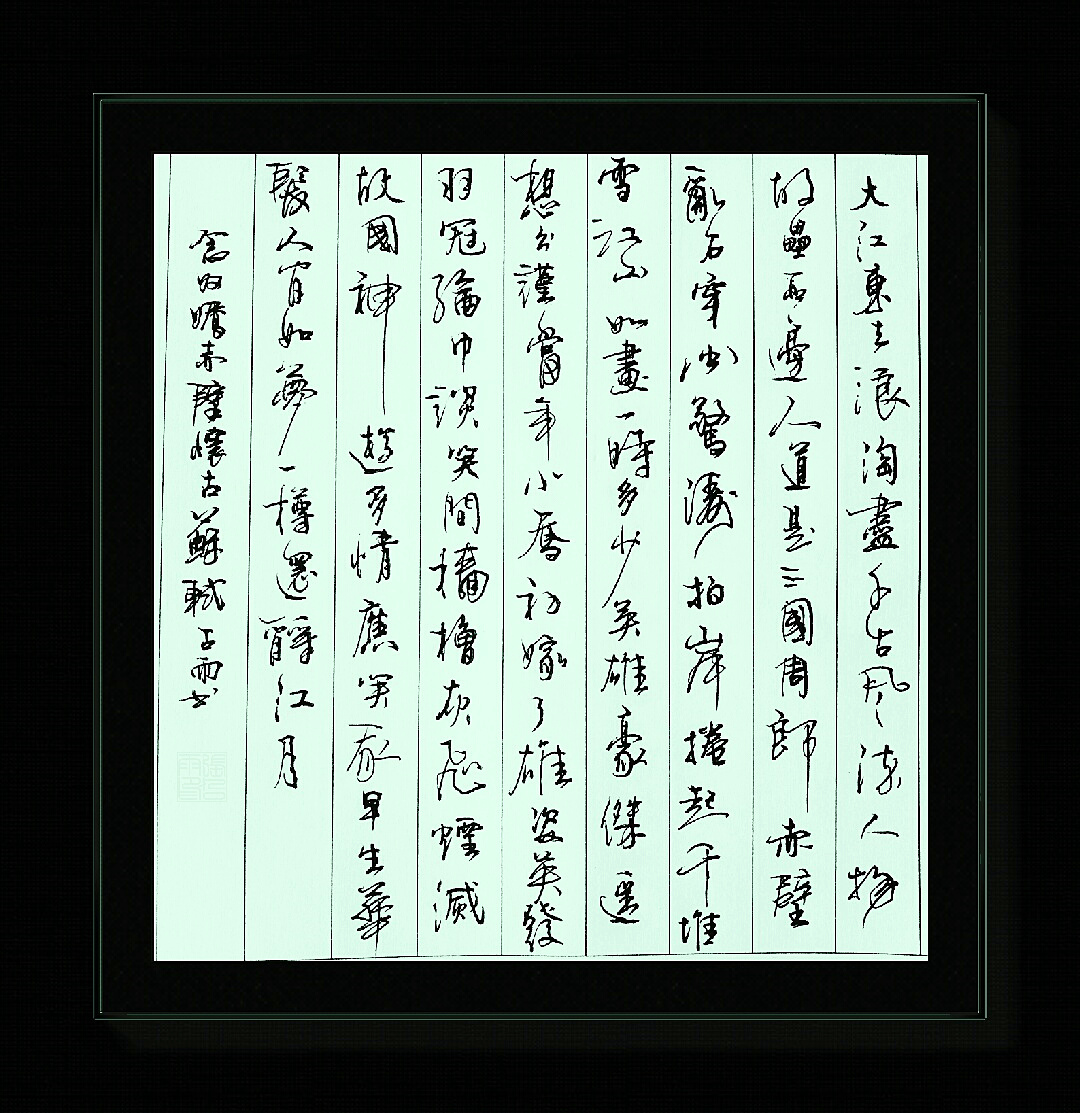 大江東去浪淘盡千古風流人物
故壘西邊人道是三國周郎赤壁
亂石穿空驚濤拍岸捲起千堆
雪江山如畫一時多少英雄豪傑遥
想公謹當年小喬初嫁了雄姿英發
羽冠綸巾談笑間檣櫓灰飛煙滅
故國神遊多情應笑我早生華
髮人間如夢一樽還酹江月
念奴嬌赤壁懷古蘇軾子书